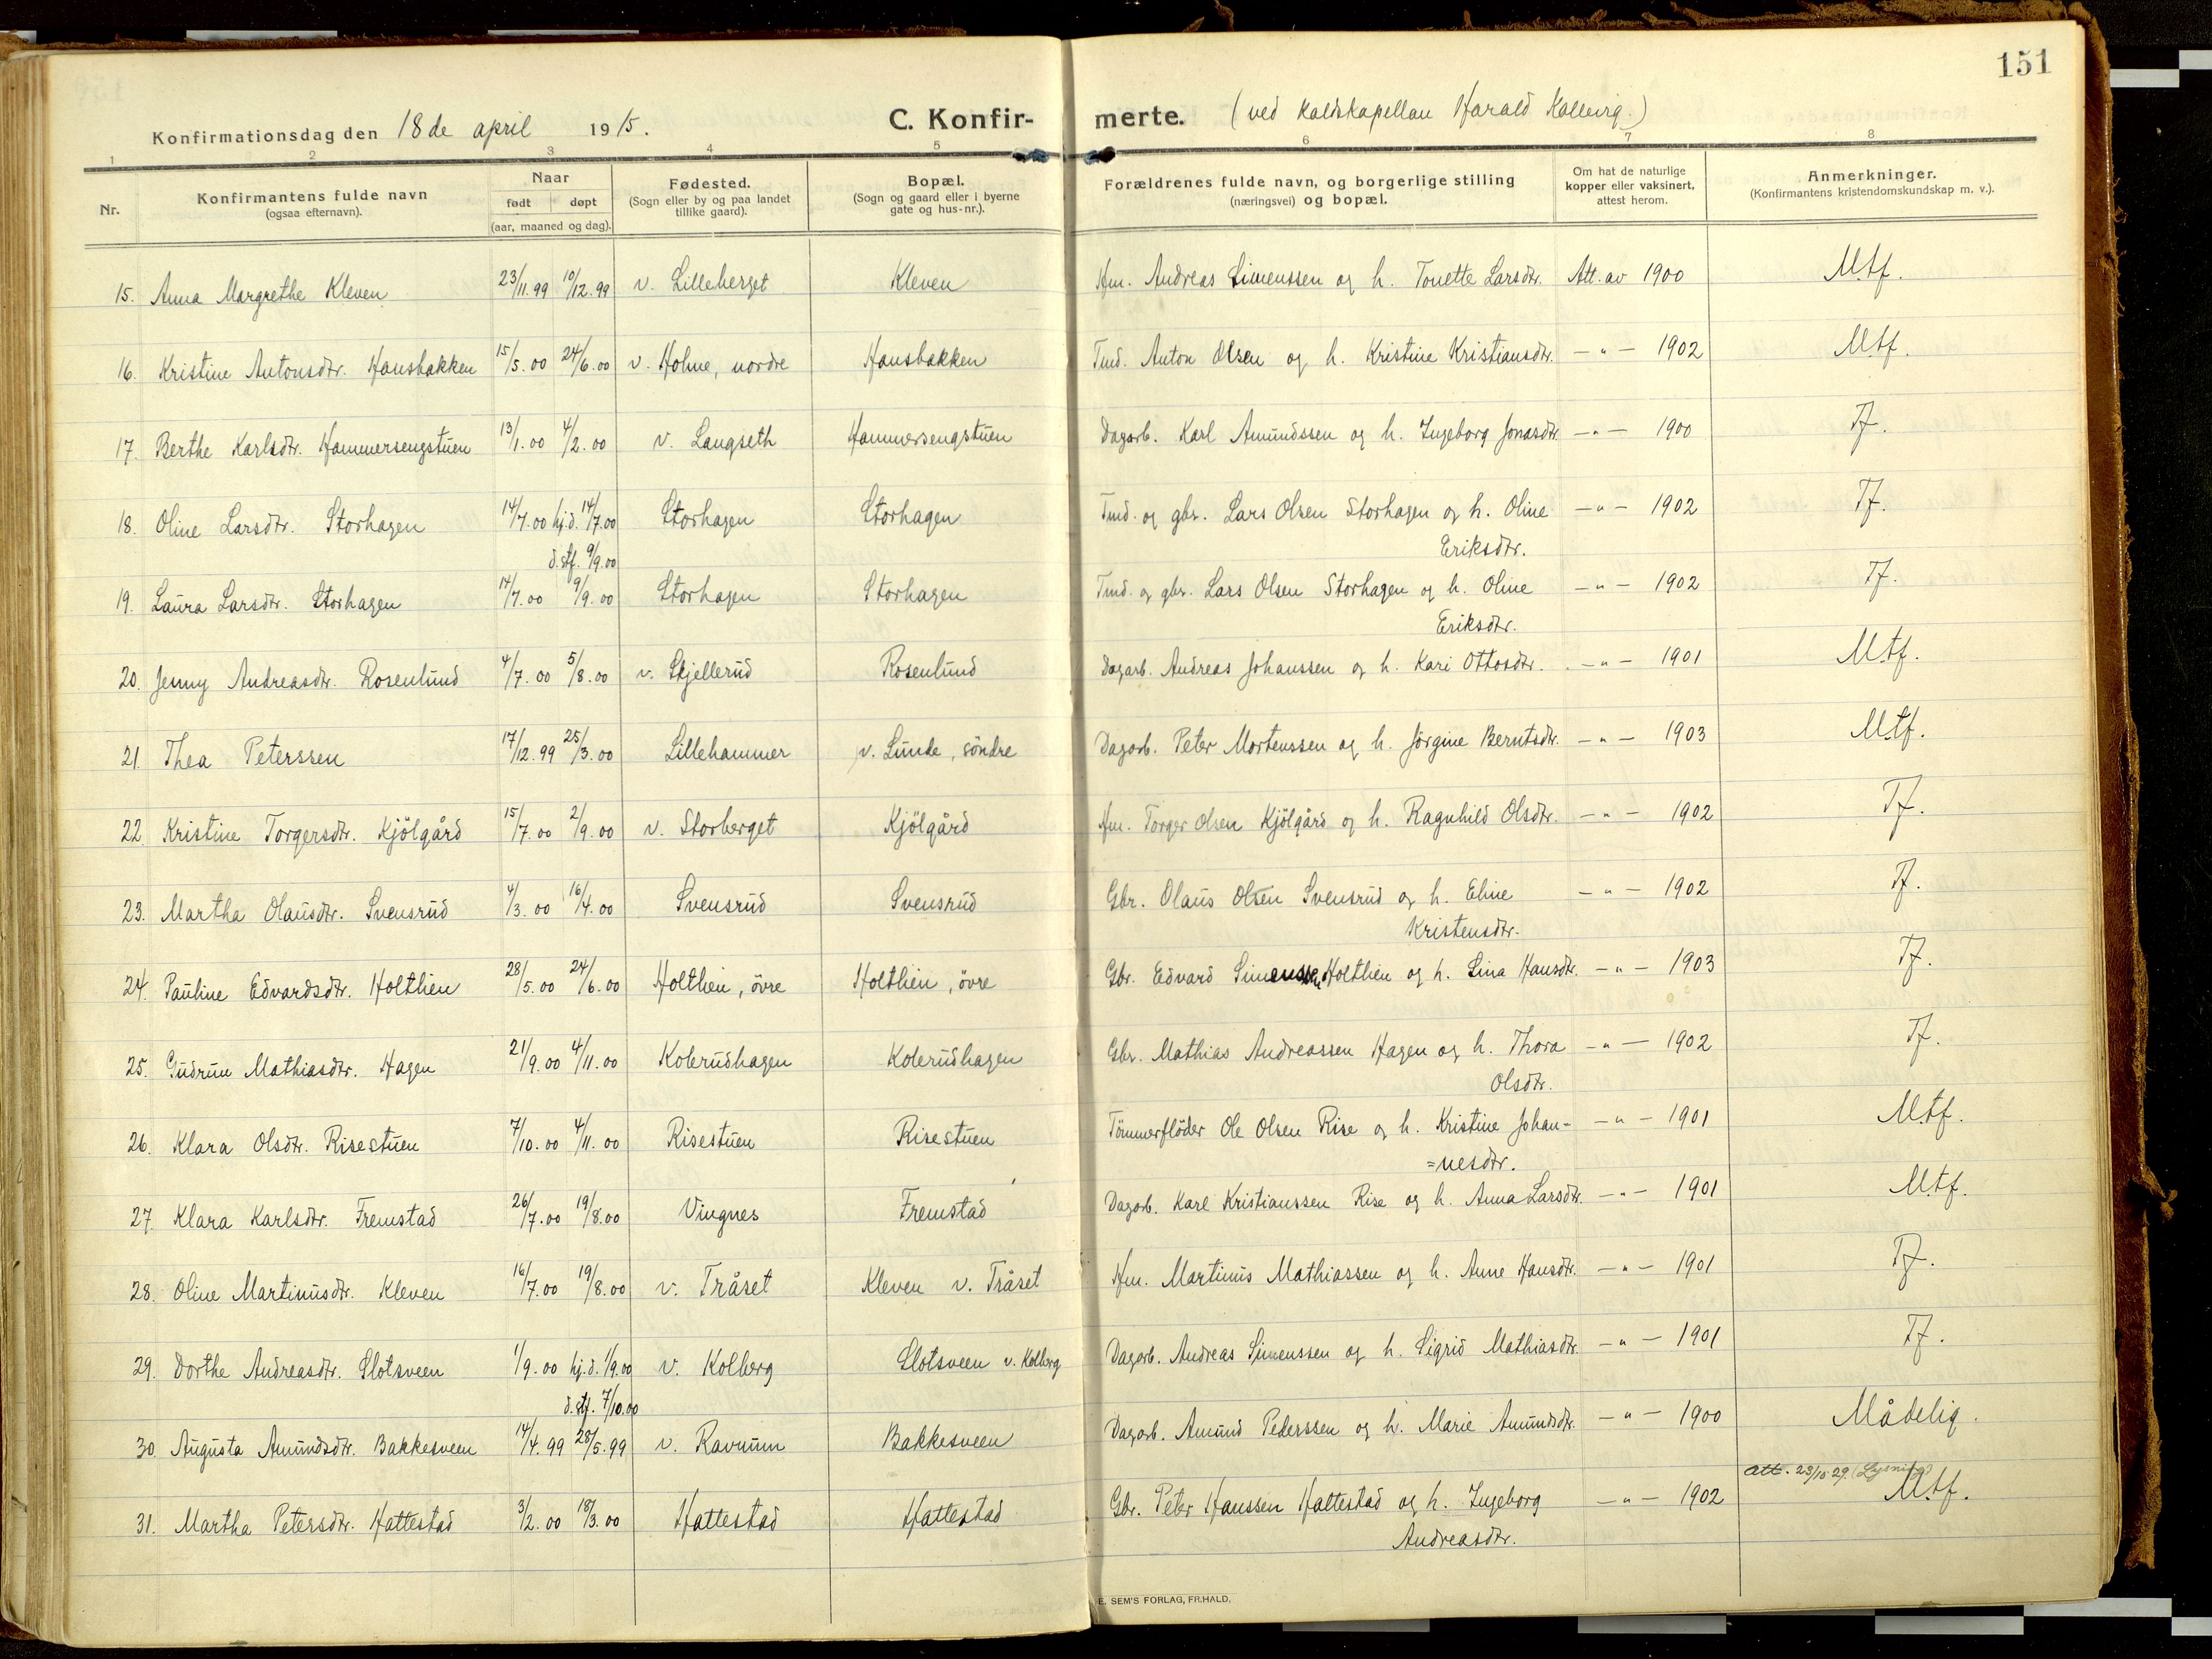 151
Konfirmationsdag den 18de april 1915. C. Konfir- merte. (ved kaldskapellan Harald Kallevig.)
1 2 3 4 5 6 7 8
Nr. Konfirmantens fulde navn (ogsaa efternavn). Naar født døpt (aar, maaned og dag). Fødested. (Sogn eller by og paa landet tillike gaard). Bopæl. (Sogn og gaard eller i byerne gate og hus-nr.). Forældrenes fulde navn, og borgerlige stilling (næringsvei) og bopæl. Om hat de naturlige kopper eller vaksinert, attest herom. Anmerkninger. (Konfirmantens kristendomskundskap m. v.).
15. Anna Margrethe Kleven 23/11.99 10/12.99 v. Lilleberget Kleven Hm. Andreas Simenssen og h. Tonette Larsdtr. Att. av 1900 Mtf.
16. Kristine Antonsdtr. Hansbakken 15/5.00 24/6.00 v. Holme, nordre Hansbakken Tmd. Anton Olsen og h. Kristine Kristiansdtr. — " — 1902 Mtf.
17. Berthe Karlsdtr. Hammersengstuen 13/1.00 4/2.00 v. Langseth Hammersengstuen Dagarb. Karl Amundssen og h. Ingeborg Jonasdtr. — " — 1900 Tf.
18. Oline Larsdtr. Storhagen 14/7.00 hj.d. 14/7.00 Storhagen Storhagen Tmd. og gbr. Lars Olsen Storhagen og h. Oline — " — 1902 Tf.
d. stf. 9/9.00 Eriksdtr.
19. Laura Larsdtr. Storhagen 14/7.00 9/9.00 Storhagen Storhagen Tmd. og gbr. Lars Olsen Storhagen og h. Oline — " — 1902 Tf.
Eriksdtr.
20. Jenny Andreasdtr. Rosenlund 4/7.00 5/8.00 v. Skjellerud Rosenlund Dagarb. Andreas Johanssen og h. Kari Ottosdtr. — " — 1901 Mtf.
21. Thea Peterssen 17/12.99 25/3.00 Lillehammer v. Lunde, söndre Dagarb. Peter Mortenssen og h. Jörgine Berntsdtr. — " — 1903 Mtf.
22. Kristine Torgersdtr. Kjölgård 15/7.00 2/9.00 v. Storberget Kjölgård Hm. Torger Olsen Kjölgård og h. Ragnhild Olsdtr. — " — 1902 Tf.
23. Martha Olausdtr. Svensrud 4/3.00 16/4.00 Svensrud Svensrud Gbr. Olaus Olsen Svensrud og h. Eline — " — 1902 Tf.
Kristensdtr.
24. Pauline Edvardsdtr. Holthien 28/5.00 24/6.00 Holthien, övre Holthien, övre Gbr. Edvard Simenssen Holthien og h. Lina Hansdtr. — " — 1903 Tf.
25. Gudrun Mathiasdtr. Hagen 21/9.00 4/11.00 Kolerudhagen Kolerudhagen Gbr. Mathias Andreassen Hagen og h. Thora — " — 1902 Tf.
Olsdtr.
26. Klara Olsdtr. Risestuen 7/10.00 4/11.00 Risestuen Risestuen Tömmerflöder Ole Olsen Rise og h. Kristine Johan- — " — 1901 Mtf.
=nesdtr.
27. Klara Karlsdtr. Fremstad 26/7.00 19/8.00 Vingnes Fremstad Dagarb. Karl Kristianssen Rise og h. Anna Larsdtr. — " — 1901 Mtf.
28. Oline Martinusdtr. Kleven 16/7.00 19/8.00 v. Tråset Kleven v. Tråset Hm. Martinus Mathiassen og h. Anne Hansdtr. — " — 1901 Tf.
29. Dorthe Andreasdtr. Slotsveen 1/9.00 hj.d. 1/9.00 v. Kolberg Slotsveen v. Kolberg Dagarb. Andreas Simenssen og h. Sigrid Mathiasdtr. — " — 1901 Tf.
d. stf. 7/10.00
30. Augusta Amundsdtr. Bakkesveen 14/4.99 28/5.99 v. Ravnum Bakkesveen Dagarb. Amund Pederssen og h. Marie Amundsdtr. — " — 1900 Mådelig.
Att. 23/10 29. (Lysning)
31. Martha Petersdtr. Hattestad 3/2.00 18/3.00 Hattestad Hattestad Gbr. Peter Hanssen Hattestad og h. Ingeborg — " — 1902 Mtf.
Andreasdtr.
E. SEM'S FORLAG, FR.HALD.